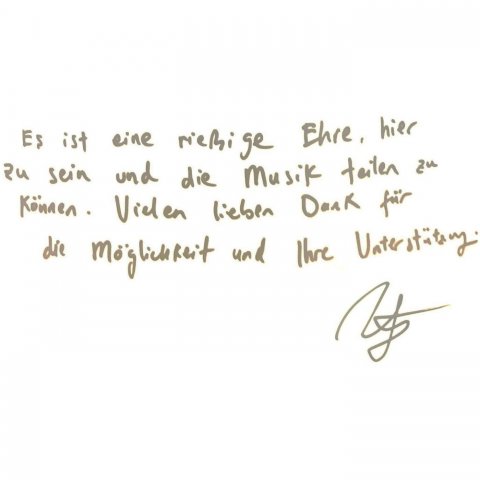 Es ist eine rießige Ehre, hier
zu sein und die Musik teilen zu
können. Vielen lieben Dank für
die Möglichkeit und Ihre Unterstützung.